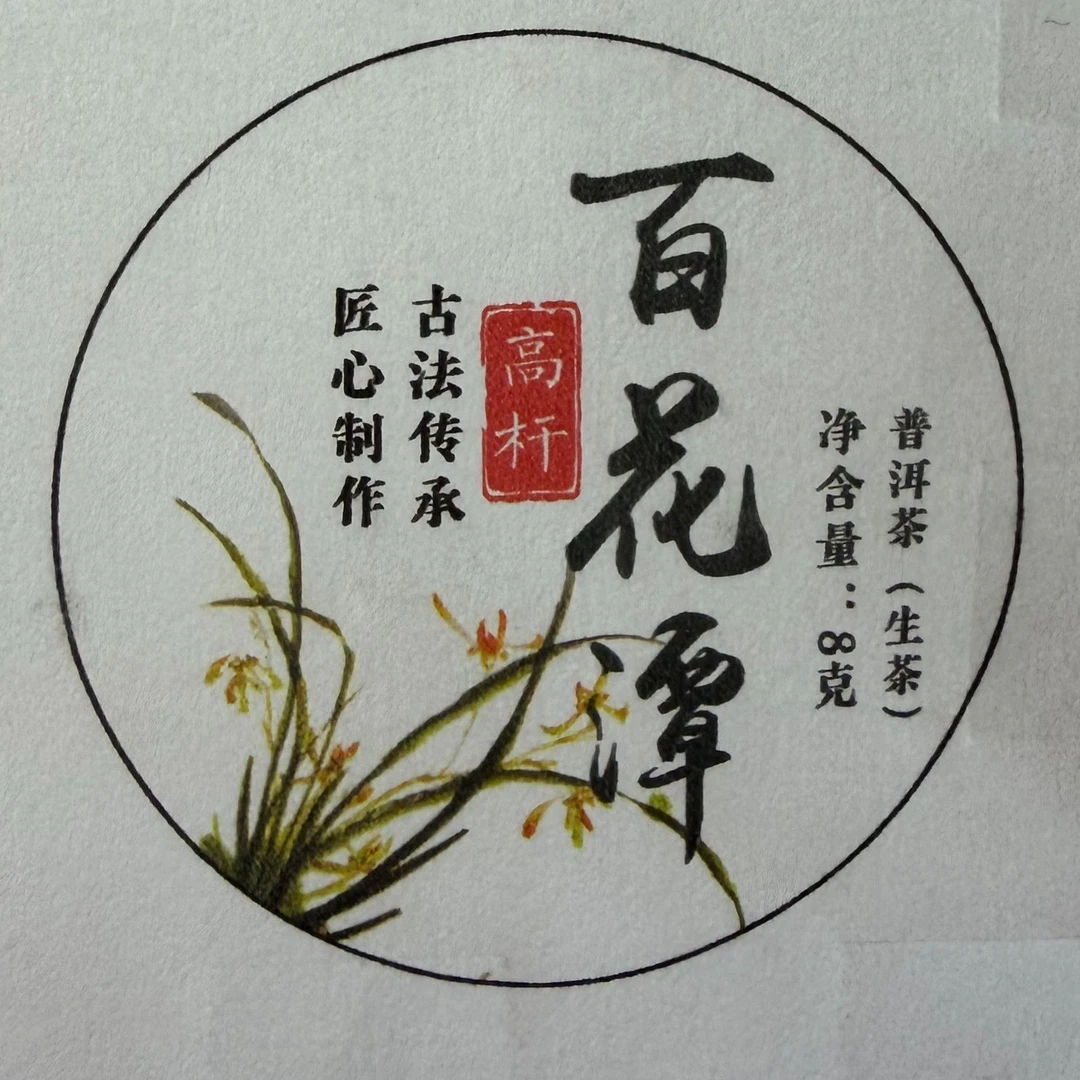 普洱茶（生茶）
净含量：8克
百花潭
高杆
古法传承
匠心制作